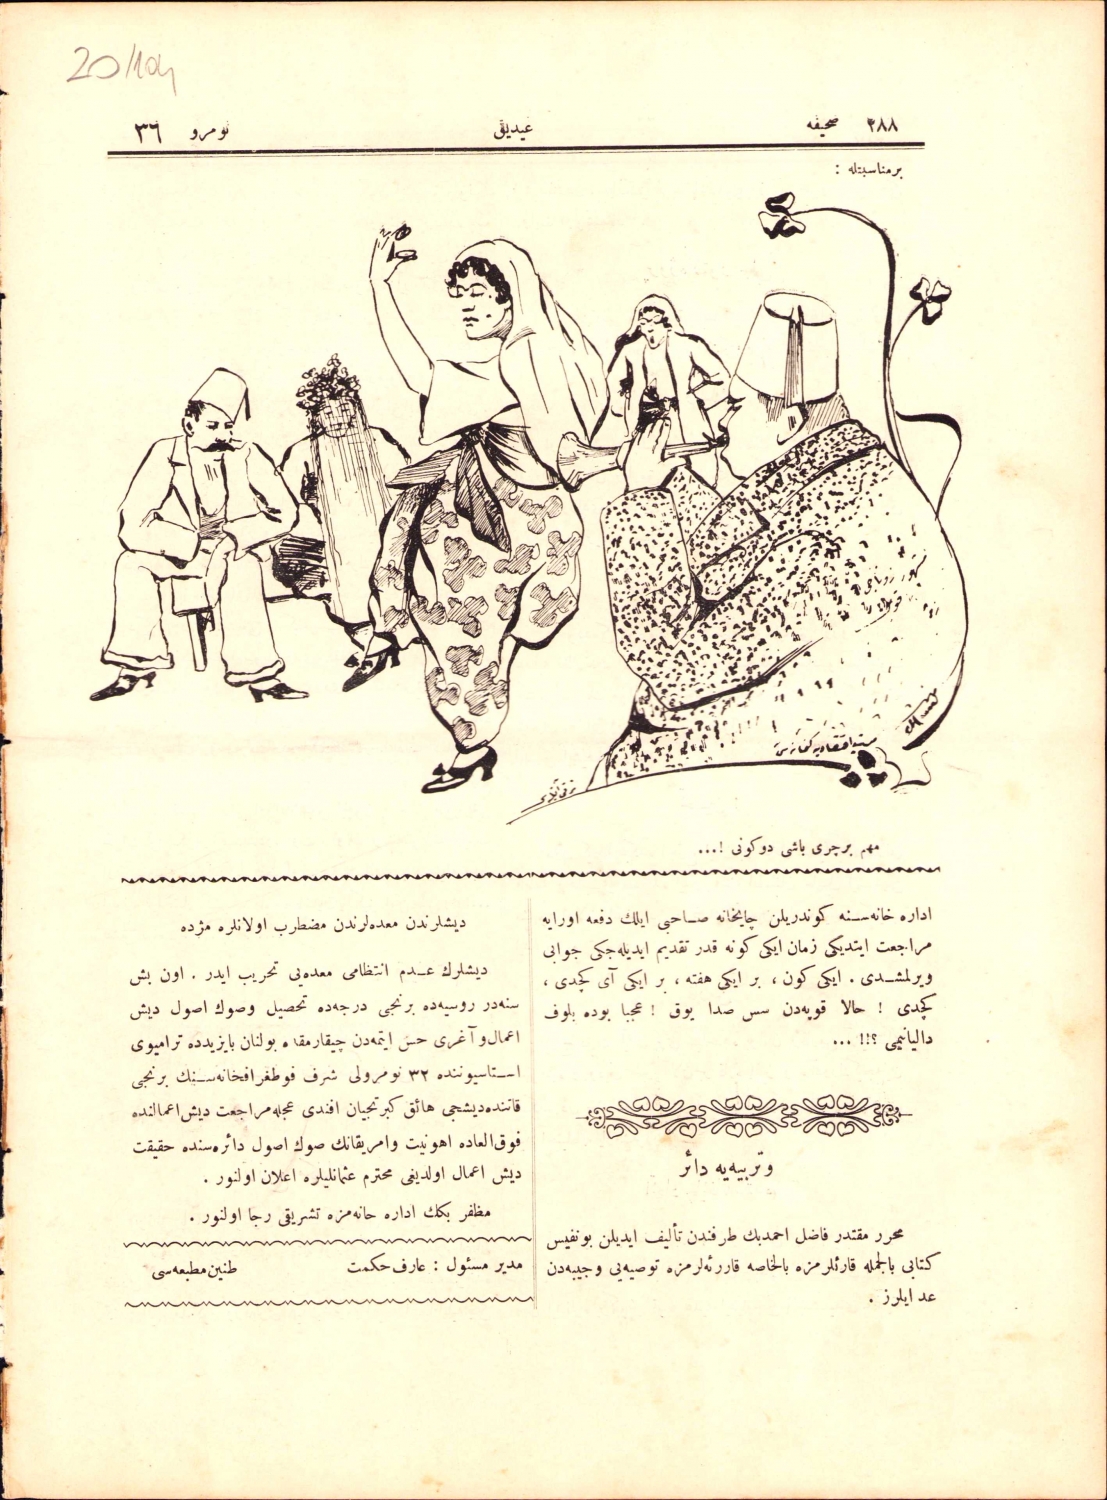 20/104
٢٨٨ صحیفه
عیدیق
نومرو ٣٦
برمناسبتله :
مهم برچری باشی دوكونی !...
اداره خانه‌سنه كوندریلن چایخانه صاحبی ایلك دفعه اورایه
مراجعت ایتدیكی زمان ایكی كونه قدر تقدیم ایدیله‌جكی جوابی
ویرلمشدی . ایكی كون ، بر ایكی هفته ، بر ایكی آی كچدی ،
كچدی ! حالا قویه‌دن سس صدا یوق ! عجبا بوده بلوف
دالیانیمی ؟!! ...
وتربیه‌یه دائر
محرر مقتدر فاضل احمدبك طرفندن تألیف ایدیلن بونفیس
كتابی بالجمله قارئلرمزه بالخاصه قارئه‌لرمزه توصیه‌یی وجیبه‌دن
عد ایلرز .
دیشلرندن معده‌لرندن مضطرب اولانلره مژده
دیشلرك عدم انتظامی معده‌یی تخریب ایدر . اون بش
سنه‌در روسیه‌ده برنجی درجه‌ده تحصیل وصوك اصول دیش
اعمال و آغری حس ایتمه‌دن چیقارمقده بولنان بایزیدده ترامیوی
استاسیوننده ٣٢ نومرولی شرف فوطغرافخانه‌سنك برنجی
قاتنده دیشجی هائق كبرتجیان افندی عجله مراجعت دیش اعمالنده
فوق‌العاده اهونیت وامریقانك صوك اصول دائره‌سنده حقیقت
دیش اعمال اولدیغی محترم عثمانلیلره اعلان اولنور .
مظفر بكك اداره خانه‌مزه تشریفی رجا اولنور .
مدیر مسئول : عارف حكمت
طنین مطبعه‌سی